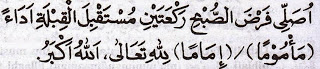 اُصَلِّى فَرْضَ الصُّبْحِ رَكْعَتَيْنِ مُسْتَقْبِلَ الْقِبْلَةِ اَدَاءً
(مَأْمُوْمًا)/(اِمَامًا) لِلّٰهِ تَعَالَى، اَللهُ اَكْبَرُ.